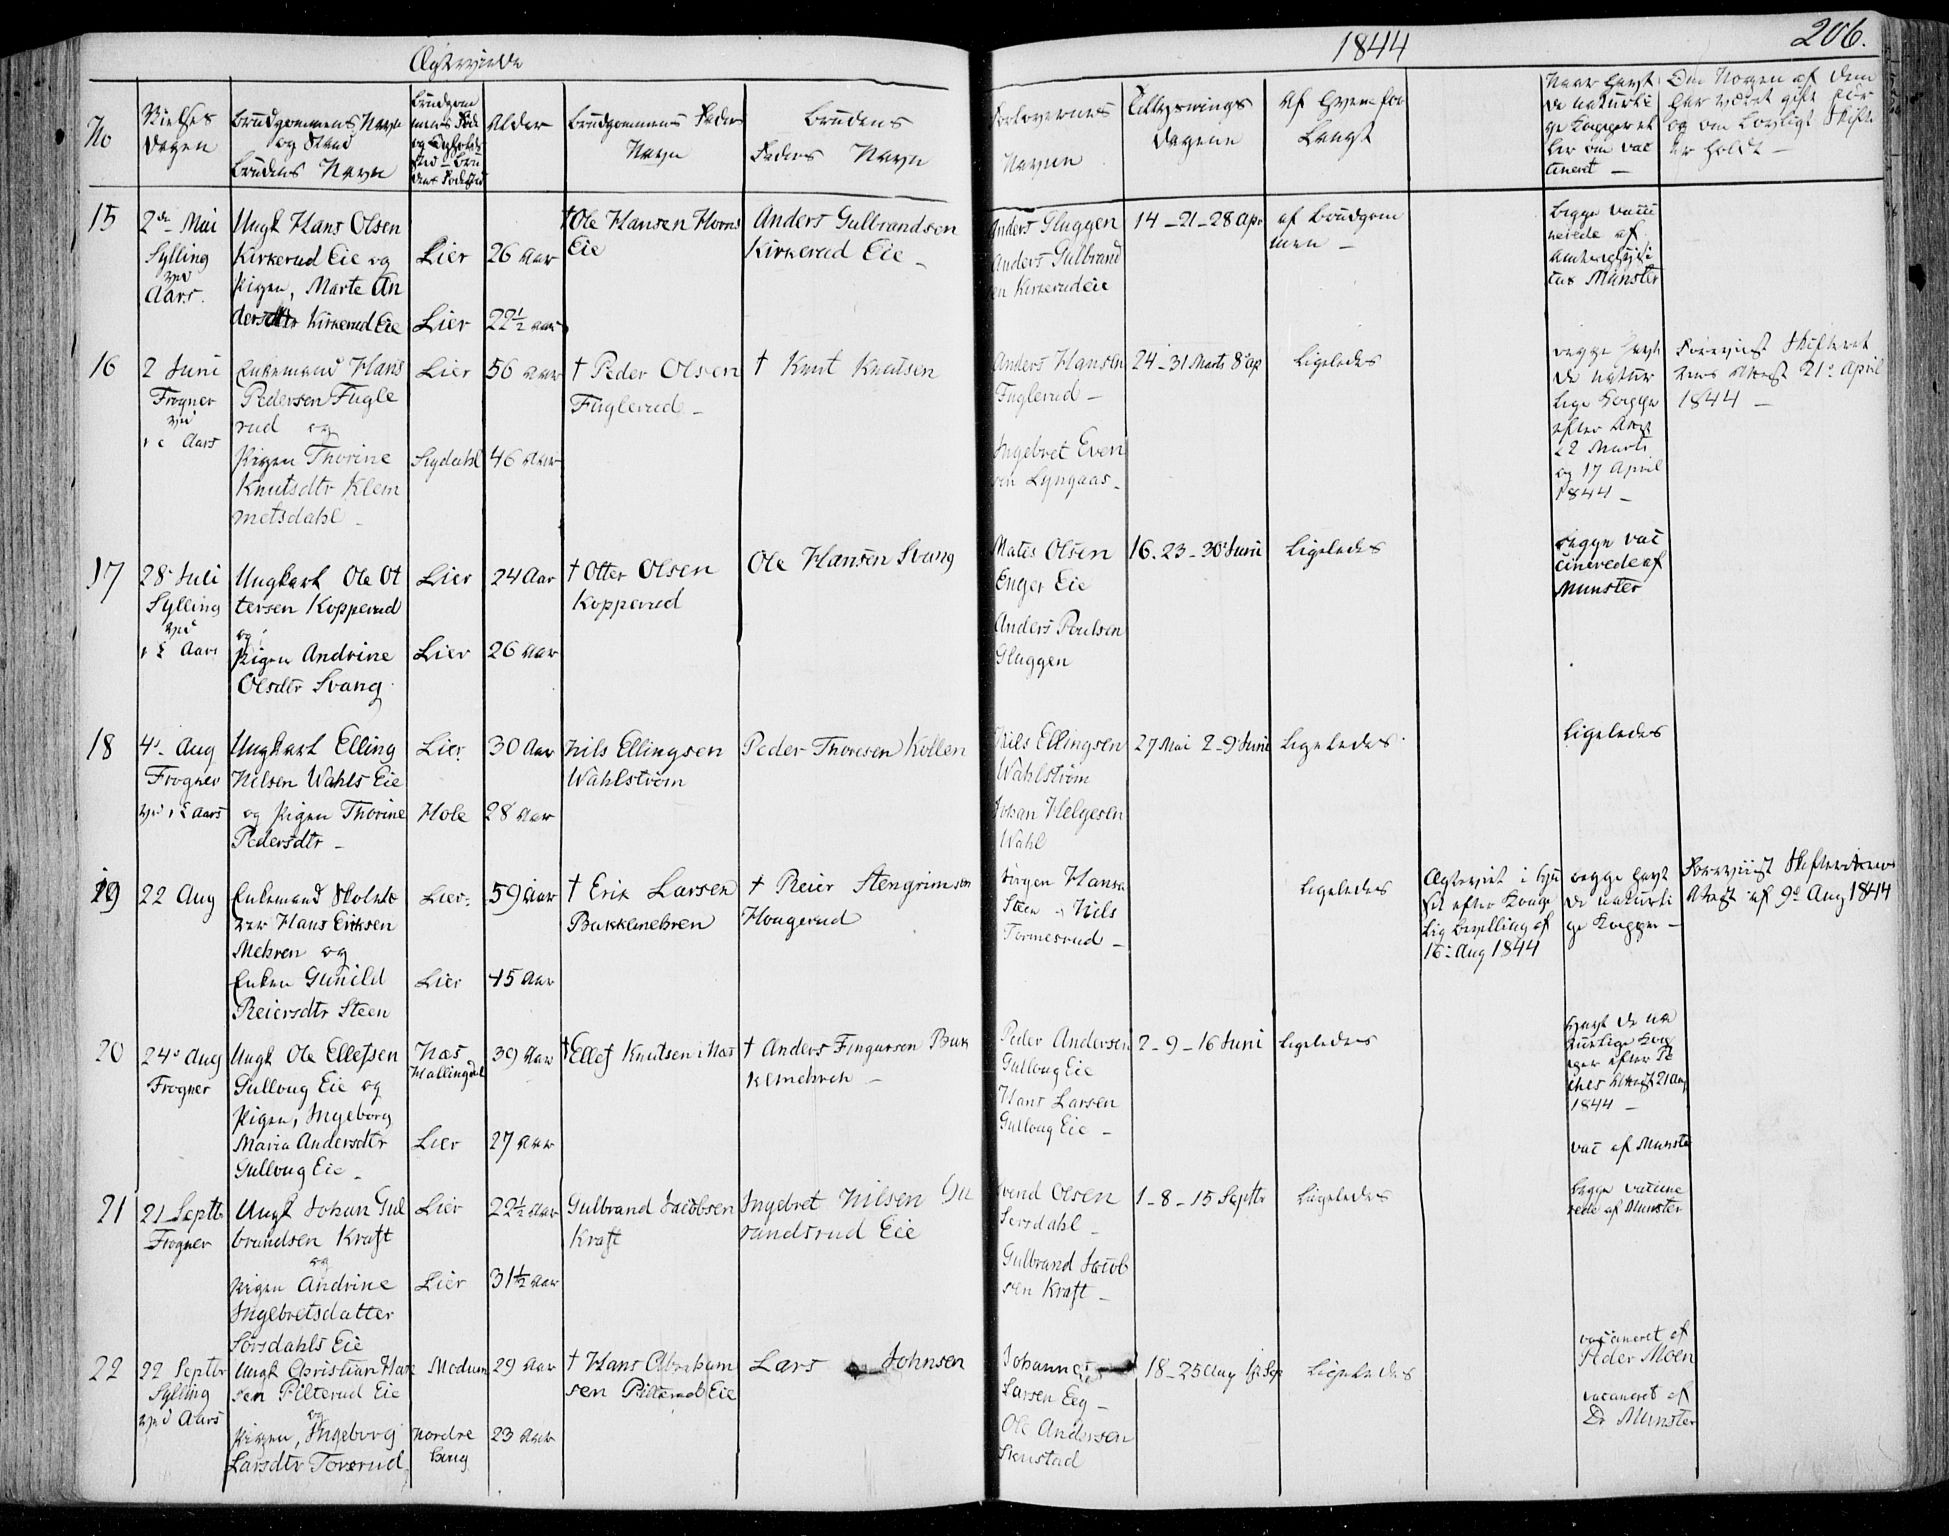 Ægteviede
1844
206.
No
Vielses
Dagen
Brudgommens Navn
og Stand
Brudens Navn
Alder
Brudgommens Faders
Navn
Brudens
Faders Navn
Forlovernes
Navne
Tillysnings
Dagene
Af Hvem for
Langt
15
2den Mai
Sylling
ved
Aars.
Ungk Hans Olsen
Kirkerud Eie og
Pigen, Marte An
dersdtr Kirkerud Eie
Lier
Lier
26 Aar
22½ Aar
† Ole Hansen Horns
Eie
Anders Gulbrandsen
Kirkerud Eie
Anders Gluggen
Anders Gulbrand
sen Kirkerud eie
14 - 21 - 28 Apr
af Brudgom
men
Begge vacci
nerede af
Munster
16
2 Juni
Frogner
ved
Aars
Enkemand Hans
Pedersen Fugle
rud og
Pigen Thorine
Knutsdtr Klem
metsdahl
Lier
Sigdahl
56 Aar
46 Aar
† Peder Olsen
Fuglerud
† Knut Knutsen
Anders Hansen
Fuglerud
Ingebret Even
sen Lyngaas
24 - 31 Marts 8 Ap
Ligeledes
Begge havt
de natur
lige Kopper
efter Att
22 Marts
og 17 April
1844
Foreviist Skifteret
tens Attest 21 April
1844
17
28 Juli
Sylling
ved
Aars
Ungkarl Ole Ot
tersen Kopperud
og
Pigen Andrine
Olsdtr Svang
Lier
Lier
24 Aar
26 Aar
† Otter Olsen
Kopperud
Ole Hansen Svang
Mates Olsen
Enger Eie
Anders Poulsen
Gluggen
16 - 23 - 30 Juni
Ligeledes
Begge vac
cinerede af
Munster
18
4 Aug
Frogner
ved Aars
Ungkarl Elling
Nilsen Wahls Eie
og Pigen Thorine
Pedersdtr
Lier
Hole
30 Aar
28 Aar
Nils Ellingsen
Wahlstrøm
Peder Thoresen Kollen
Nils Ellingsen
Wahlstrøm
Johan Helgesen
Wahl
27 Mai 2 - 9 Juni
Ligeledes
Ligeledes
19
22 Aug
Enkemand Skolelæ
rer Hans Eriksen
Mehren og
Enken Gunild
Reiersdtr Steen
Lier
Lier
59 Aar
45 Aar
† Erik Larsen
Bukkemehren
† Reier Stengrimsen
Hougerud
Jørgen Hansen
Steen Nils
Tormesrud
Ligeledes
Ægteviet i Hu
set efter Konge
lig Bevilling af
16 Aug 1844
Begge havt
de naturli
ge Kopper
Foreviist Skifterettens
Attest af 9 Aug 1844
20
24 Aug
Frogner
Ungk Ole Ellefsen
Gulloug Eie og
Pigen, Ingeborg
Maria Andersdtr
Gulloug Eie
Næs
Hallingdal
Lier
39 Aar
27 Aar
† Ellef Knutsen i Næs
† Anders Fingarsen Buk
kemehren
Peder Andersen
Gulloug Eie
Hans Larsen
Gulloug Eie
2 - 9 - 16 Juni
Ligeledes
Havt de na
turlige Kop
per efter
Attest 21 Aug
1844
vac af Munster
21
21 Septbr
Frogner
Ungk Johan Gul
brandsen Kraft
og
Pigen Andrine
Ingebretsdatter
Sørsdahls Eie
Lier
Lier
22½ Aar
31½ Aar
Gulbrand Jacobsen
Kraft
Ingebret Nilsen
randsrud Eie
Svend Olsen
Sørsdahl
Gulbrand Jacob
sen Kraft
1 - 8 - 15 Septbr
Ligeledes
Begge vaccine
rede af Munster
22
22 Septbr
Sylling
ved Aars
Ungk Christian Han
sen Pilterud Eie
og
Pigen, Ingeborg
Larsdtr Toverud
Modum
Nordre
houg
29 Aar
23 Aar
† Hans Abraham
sen Pilterud Eie
Lars Johnsen
Johannes
Larsen Eeg
Ole Andersen
Stenstad
18 - 25 Aug 1 Sep
Ligeledes
vaccineret af
Peder Moen
vaccineret af
Dr Munster